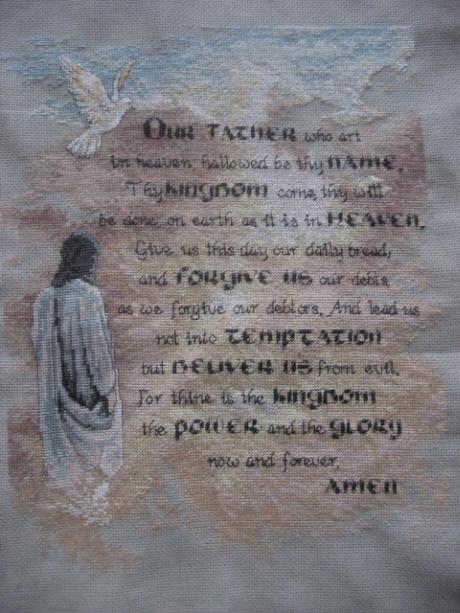 OUR FATHER who art
in heaven, hallowed be thy NAME.
Thy KINGDOM come, thy will
be done, on earth as it is in HEAVEN.
Give us this day our daily bread;
and FORGIVE US our debts
as we forgive our debtors. And lead us
not into TEMPTATION
but DELIVER US from evil.
For thine is the KINGDOM
the POWER and the GLORY
now and forever.
AMEN